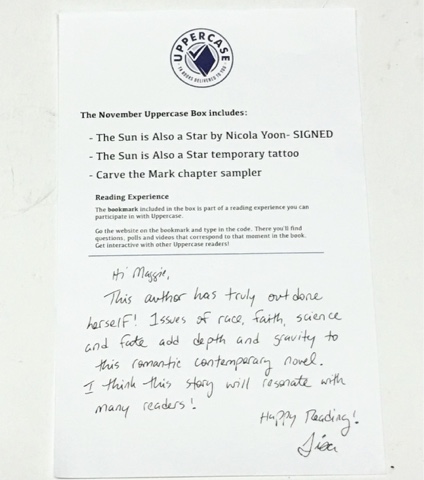 UPPERCASE
YA BOOKS DELIVERED TO YOU
The November Uppercase Box includes:
- The Sun is Also a Star by Nicola Yoon- SIGNED
- The Sun is Also a Star temporary tattoo
- Carve the Mark chapter sampler
Reading Experience
The bookmark included in the box is part of a reading experience you can
participate in with Uppercase.
Go the website on the bookmark and type in the code. There you'll find
questions, polls and videos that correspond to that moment in the book.
Get interactive with other Uppercase readers!
Hi Maggie,
This author has truly outdone
herself! Issues of race, faith, science
and fate add depth and gravity to
this romantic contemporary novel.
I think this story will resonate with
many readers!
Happy Reading!
Lisa